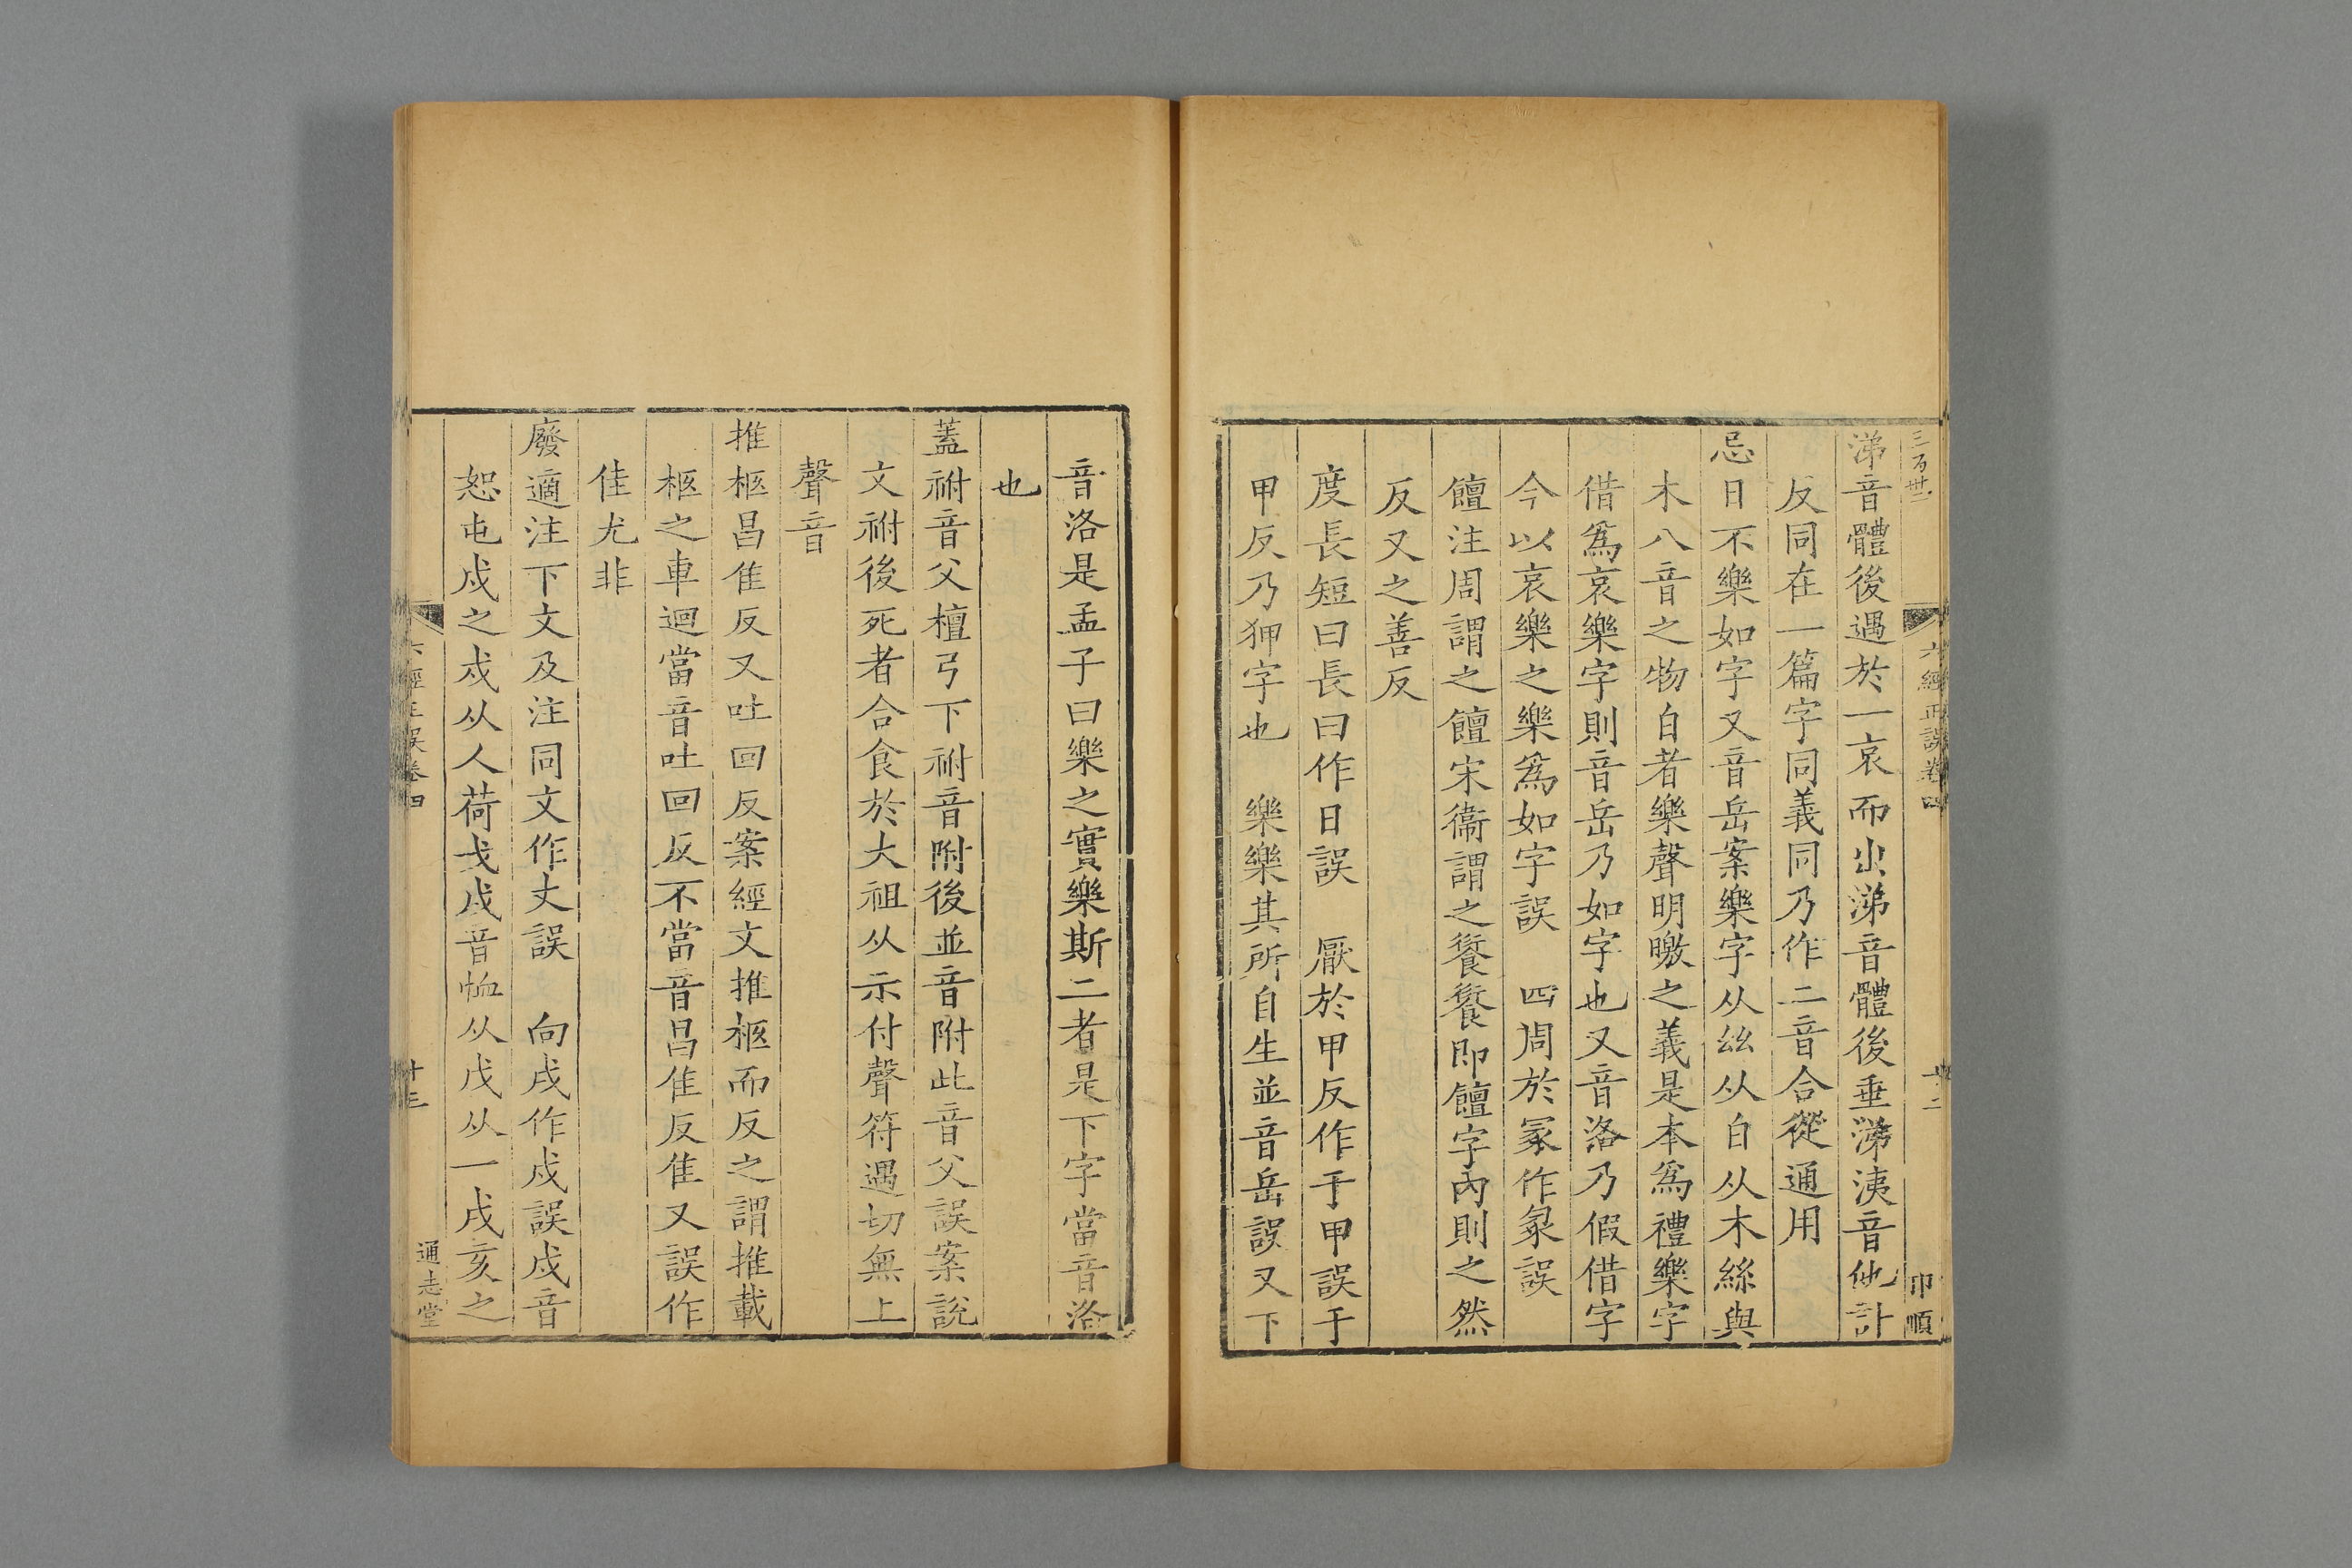 三百卅二
六經正誤卷四
十二
印順
涕音體後遇於一哀而出涕音體後垂涕洟音他計
反同在一篇字同義同乃作二音合從通用
忌日不樂如字又音岳案樂字从𢆶从白从木絲與
木八音之物白者樂聲明曒之義是本爲禮樂字
借爲哀樂字則音岳乃如字也又音洛乃假借字
今以哀樂之樂爲如字誤　四周於冢作冡誤
饘注周謂之饘宋衞謂之餐餐即饘字內則之然
反又之善反
度長短曰長曰作日誤　厭於甲反作于甲誤于
甲反乃狎字也　樂樂其所自生並音岳誤又下
音洛是孟子曰樂之實樂斯二者是下字當音洛
也
蓋祔音父檀弓下祔音附後並音附此音父誤案說
文祔後死者合食於大祖从示付聲符遇切無上
聲音
推柩昌隹反又吐回反案經文推柩而反之謂推載
柩之車迴當音吐回反不當音昌隹反隹又誤作
佳尤非
廢適注下文及注同文作丈誤　向戌作戍誤戍音
恕屯戍之戍从人荷戈戌音恤从戊从一戌亥之
六經正誤卷四
十三
通志堂